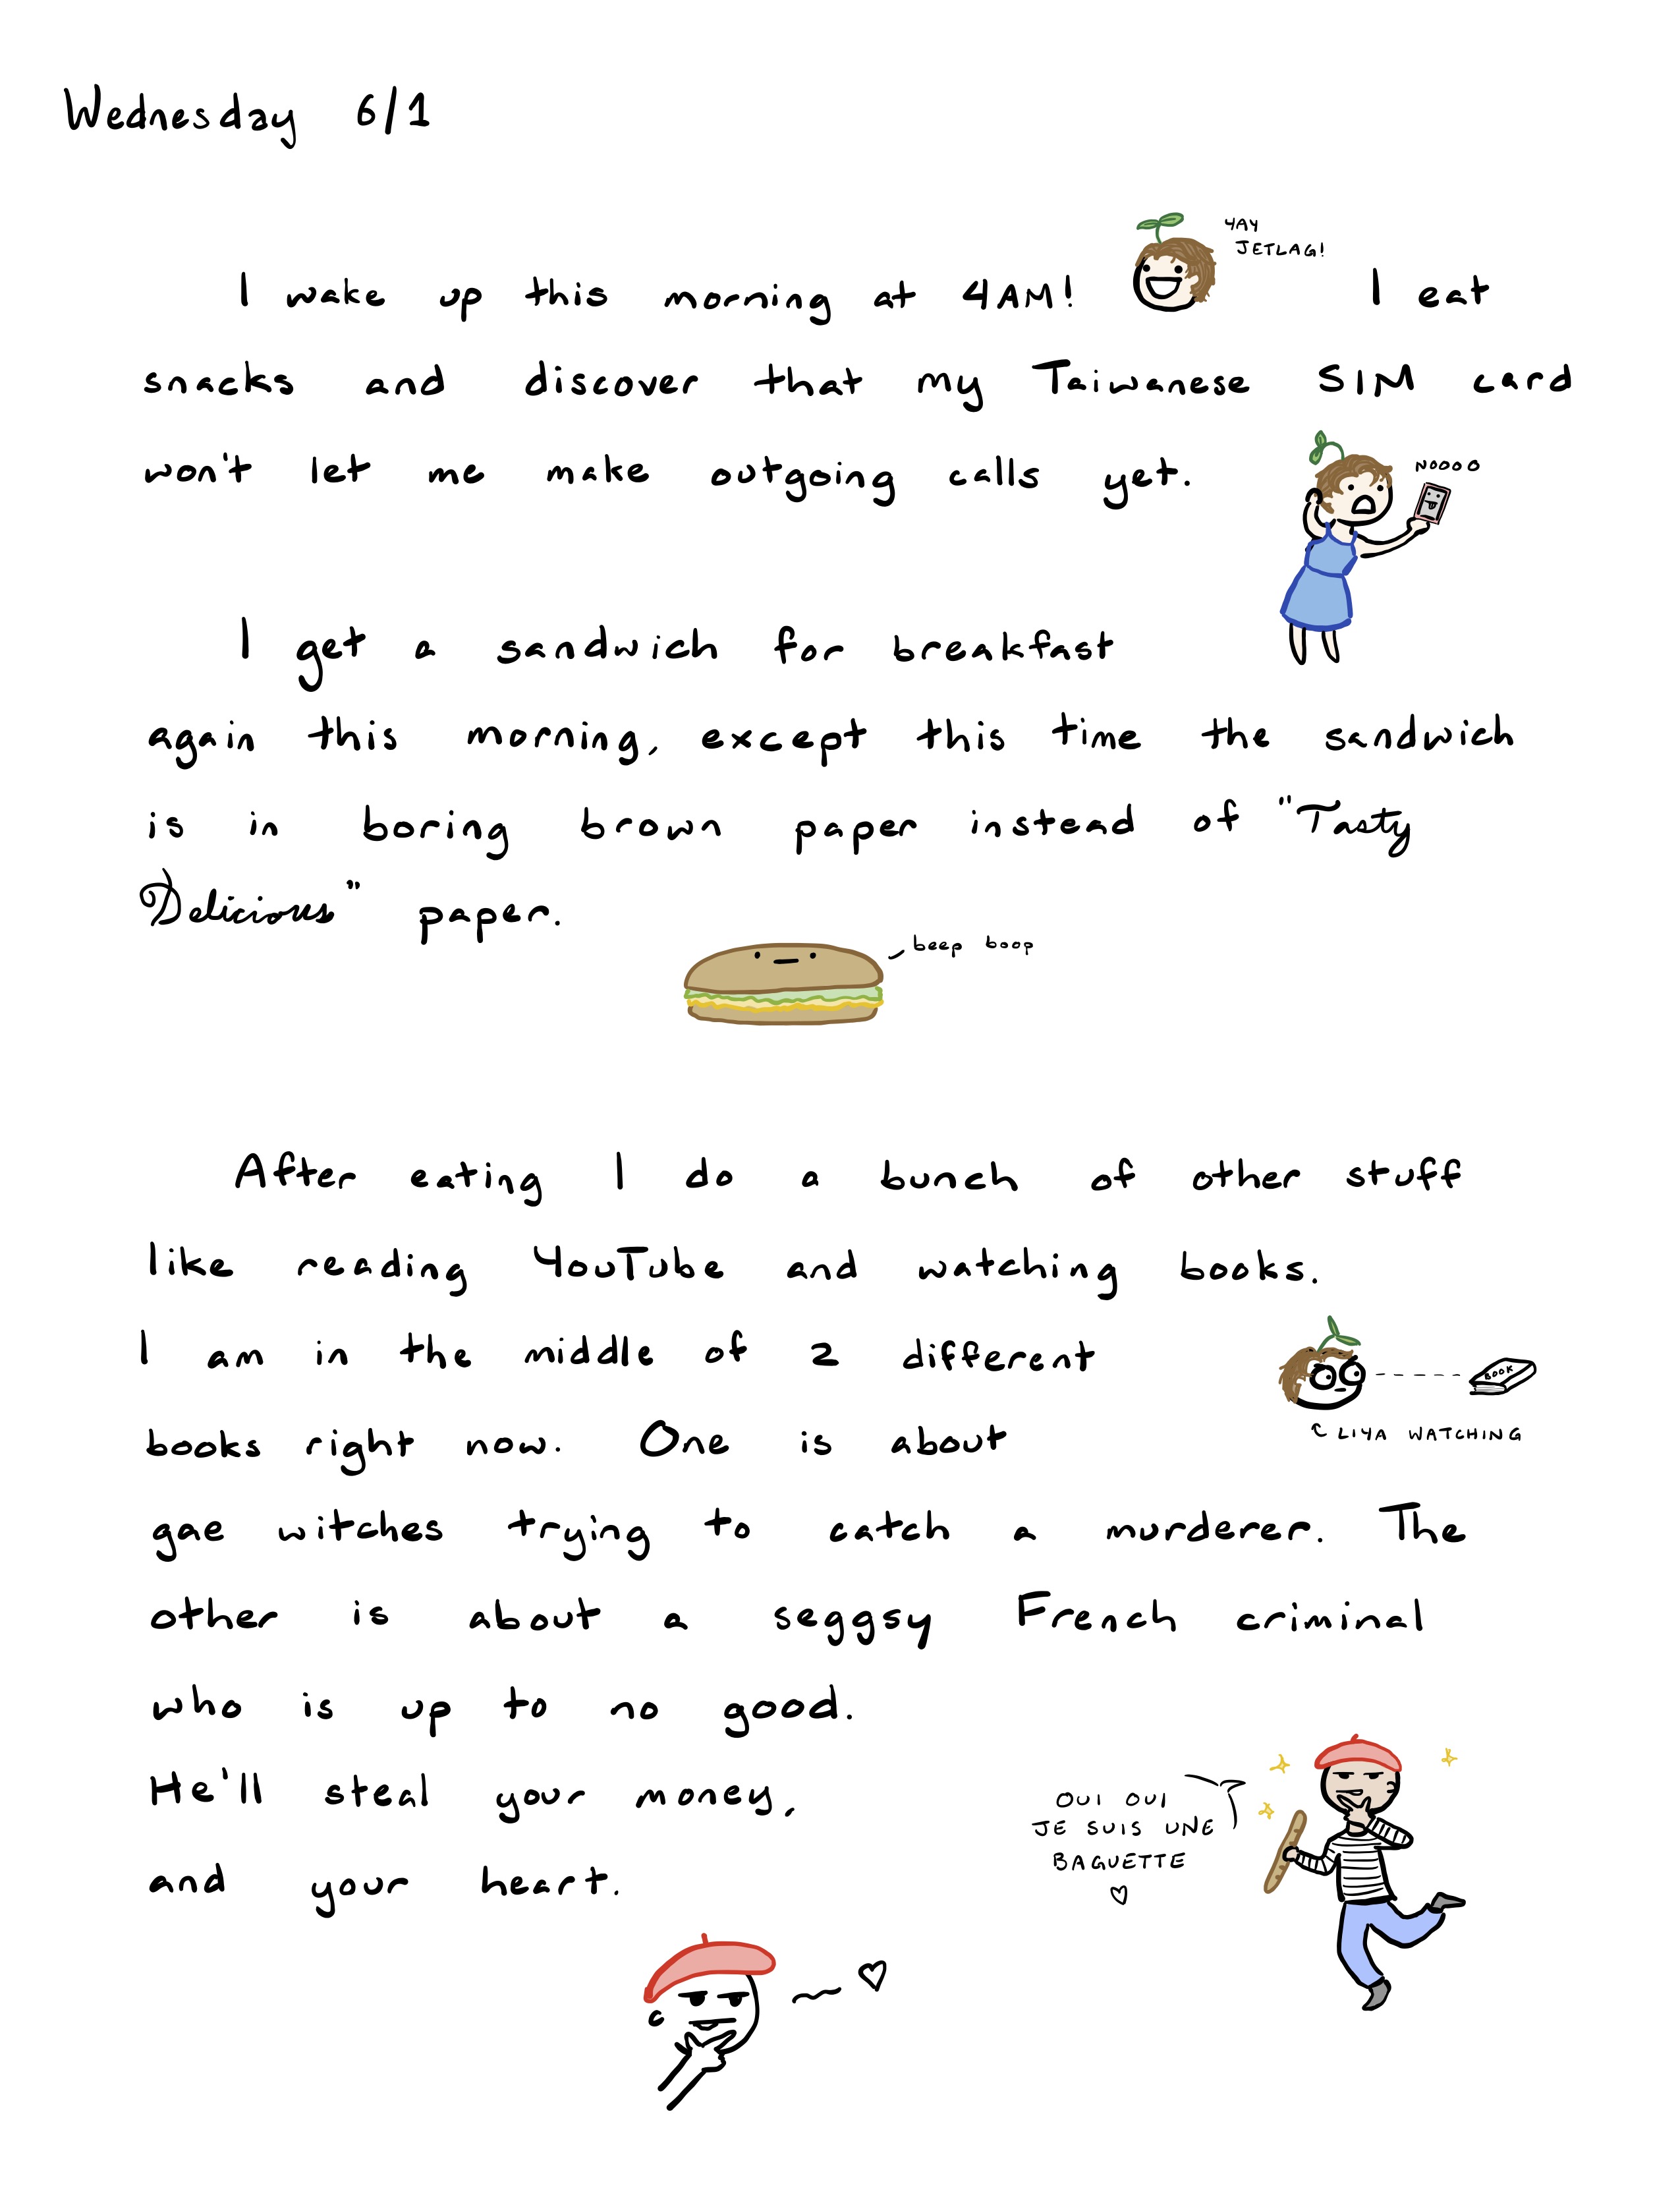 Wednesday 6/1
YAY
JETLAG!
I wake up this morning at 4AM! I eat
snacks and discover that my Taiwanese SIM card
won't let me make outgoing calls yet.
NOOOO
I get a sandwich for breakfast
again this morning, except this time the sandwich
is in boring brown paper instead of "Tasty
Delicious" paper.
beep boop
After eating I do a bunch of other stuff
like reading YouTube and watching books.
I am in the middle of 2 different
BOOK
LIYA WATCHING
books right now. One is about
gae witches trying to catch a murderer. The
other is about a seggsy French criminal
who is up to no good.
He'll steal your money,
and your heart.
OUI OUI
JE SUIS UNE
BAGUETTE